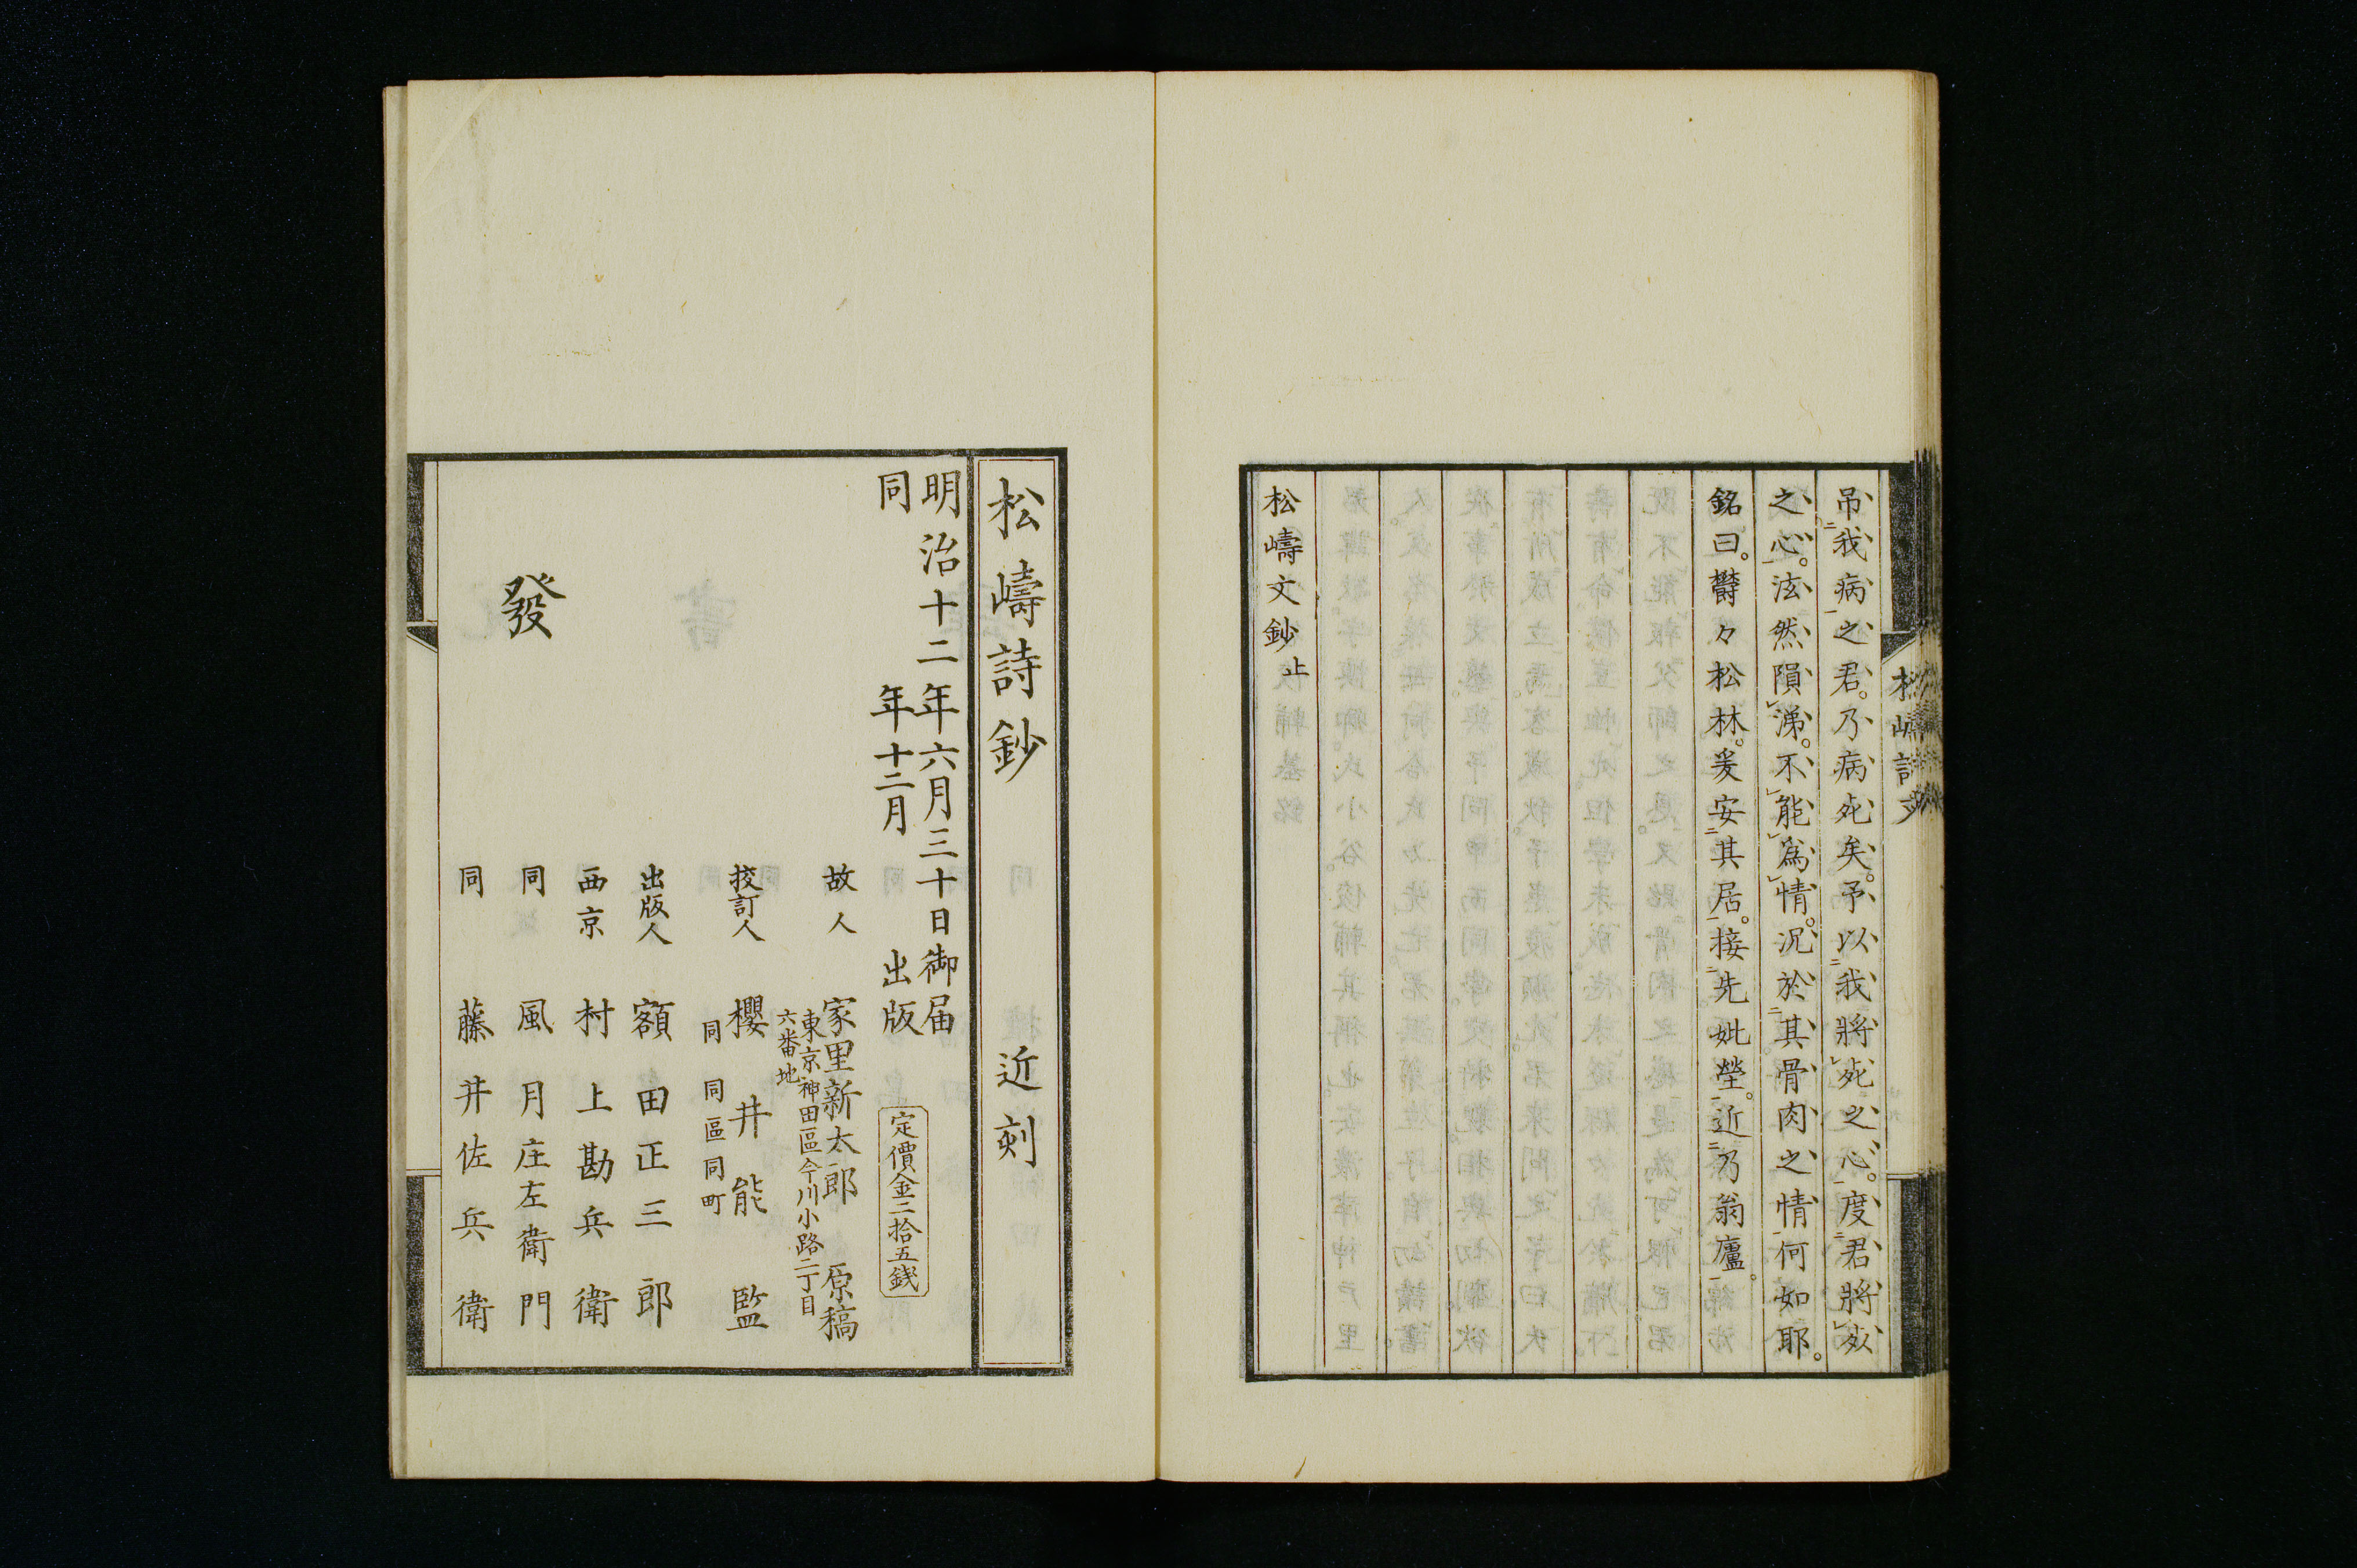 吊我病之君。乃病死矣。予以我將死之心。度君將死
之心。泫然隕涕。不能爲情。況於其骨肉之情何如耶。
銘曰。欝々松林。爰安其居。接先妣塋。近乃翁廬。
松嶹文鈔止
松嶹詩鈔　近刻
明治十二年六月三十日御届
同　年十二月　出版
定價金二拾五錢
故人　家里新太郎　原稿
東京神田區今川小路二丁目
六番地
挍訂人　櫻井能監
同　同區同町
出版人　額田正三郎
西京　村上勘兵衛
同　風月庄左衛門
同　藤井佐兵衛
發